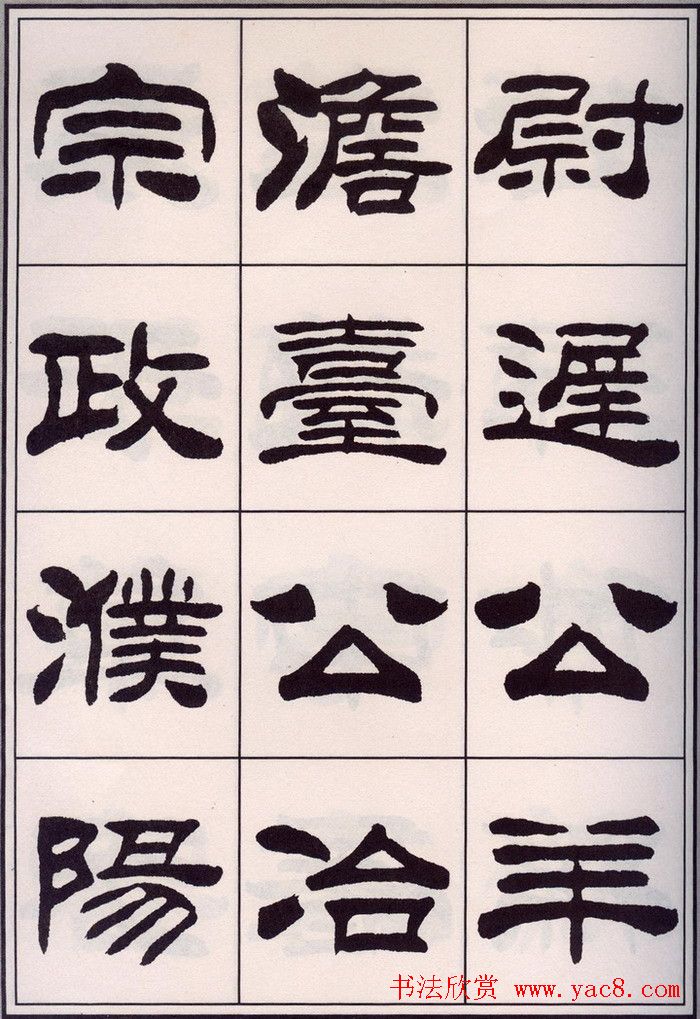 尉遲公羊
澹臺公冶
宗政濮陽
书法欣赏 www.yac8.com